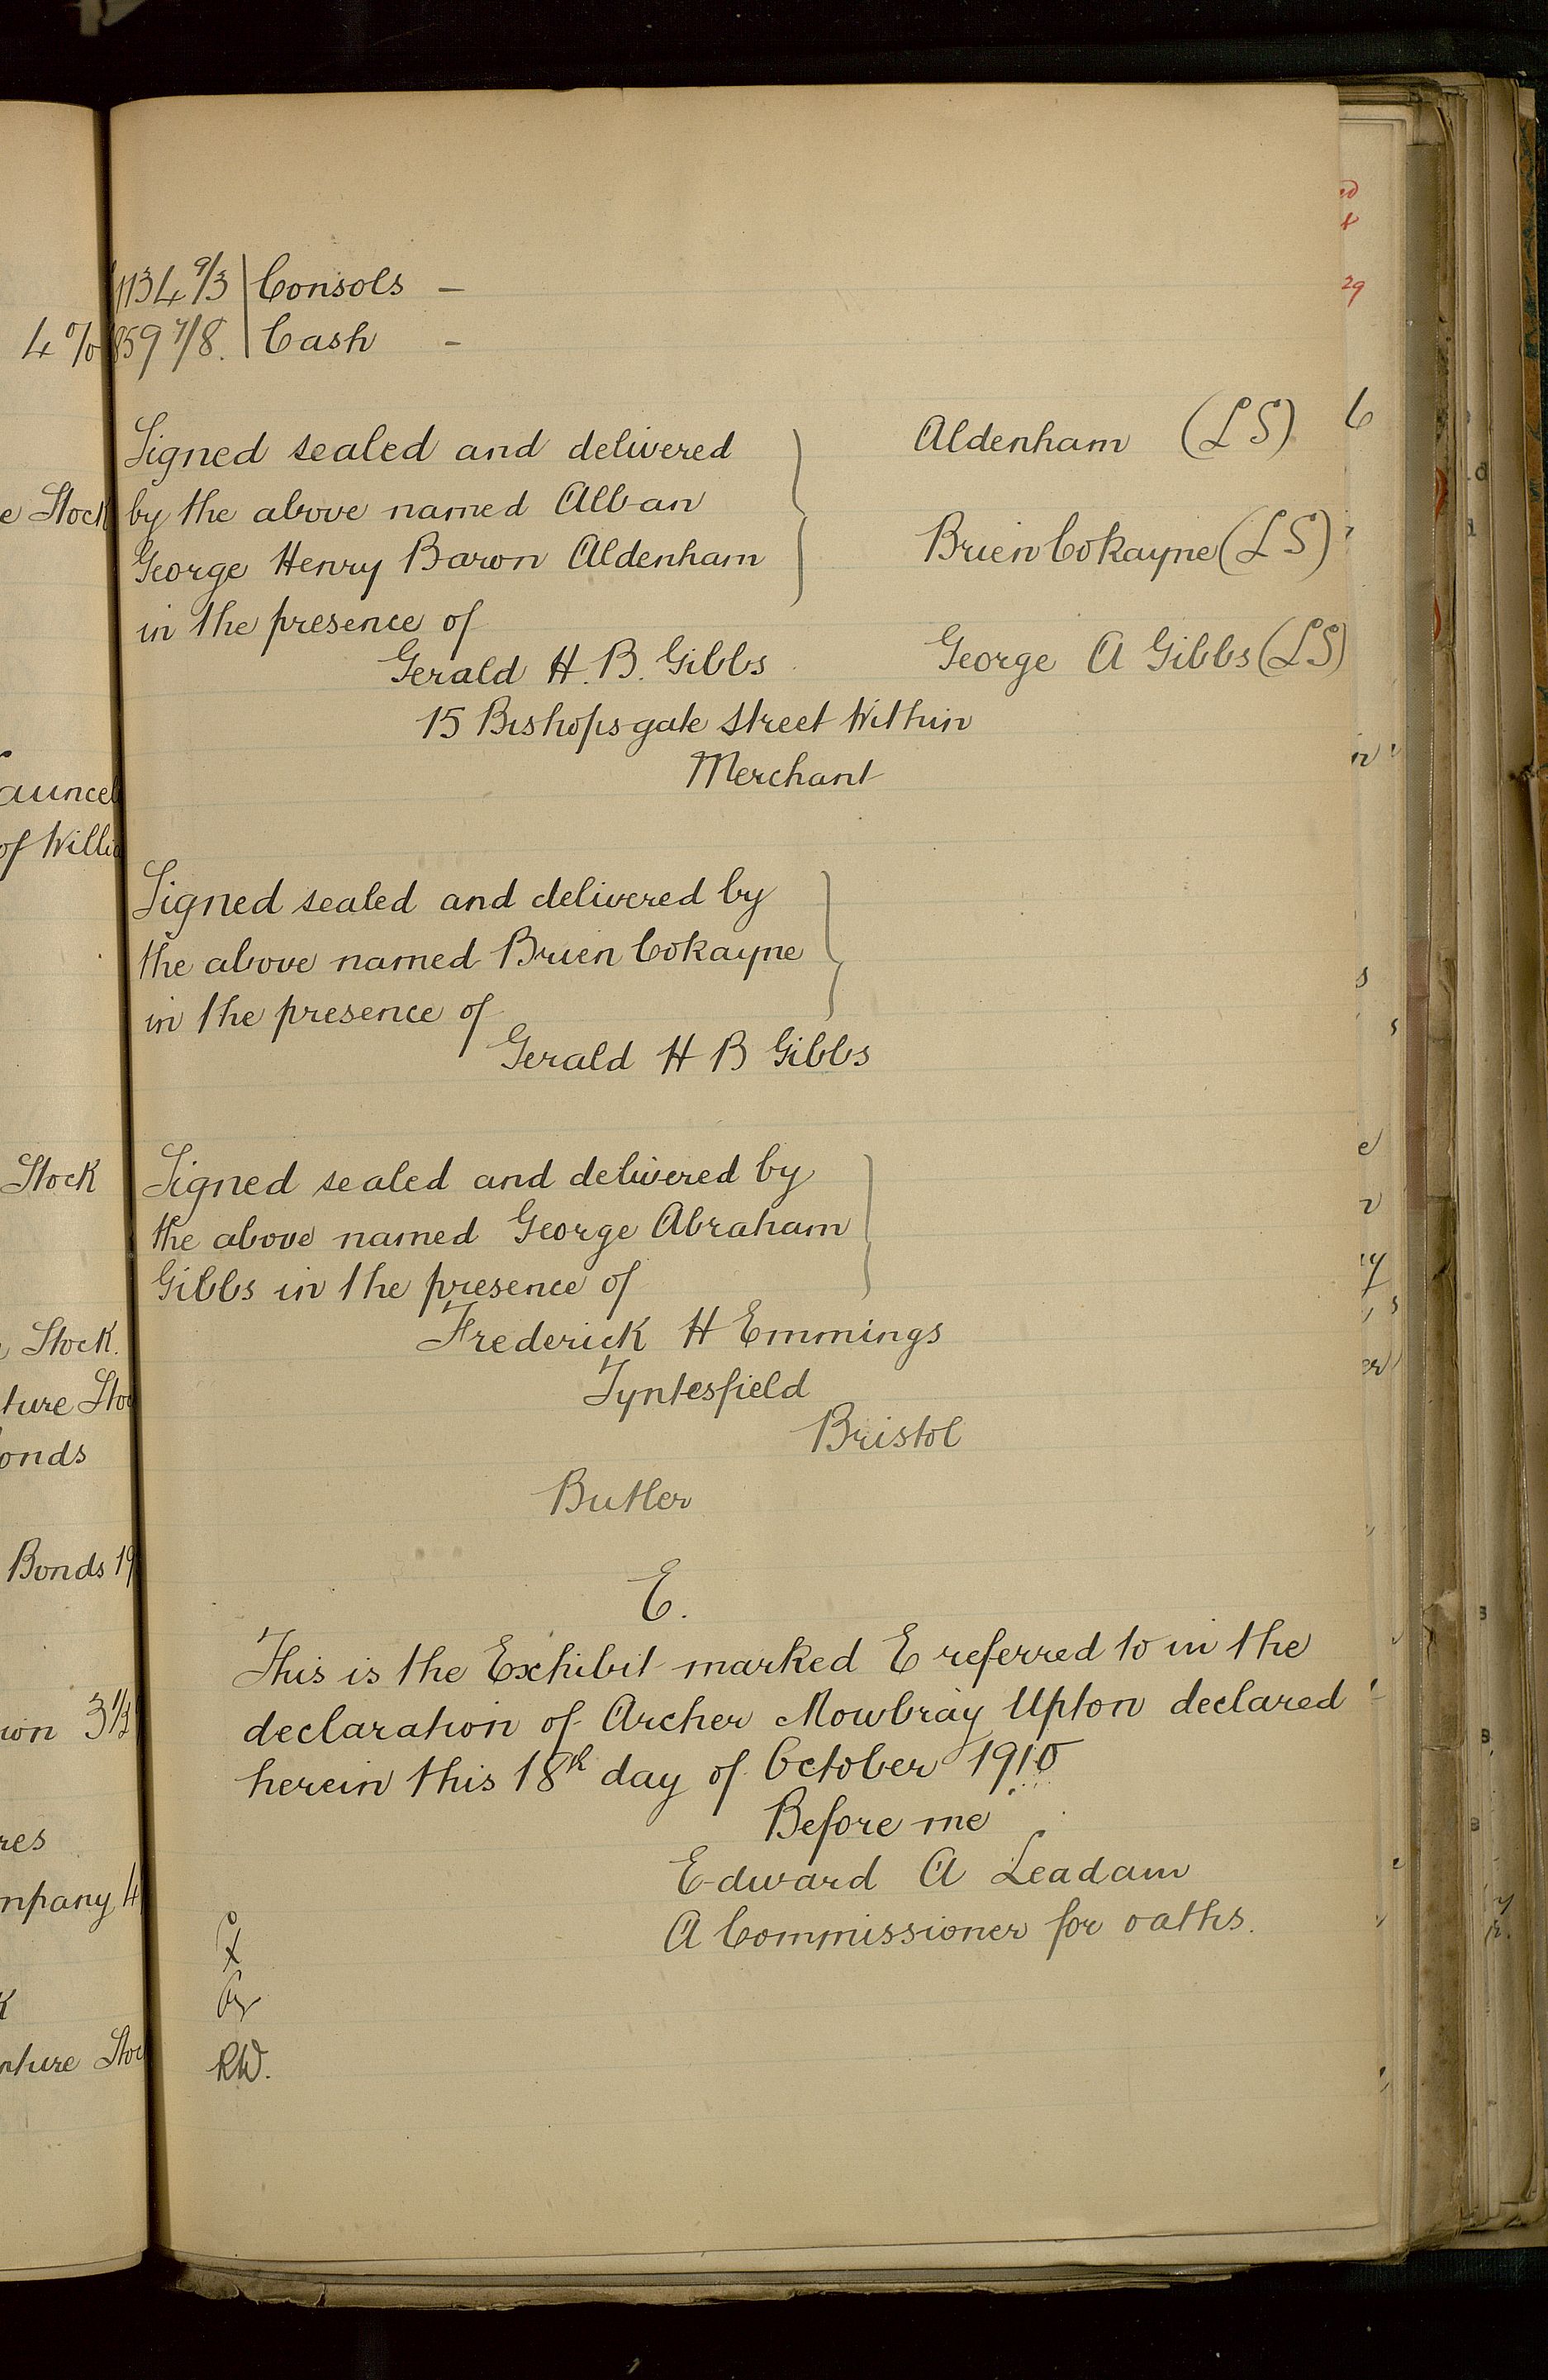 1134 9/3 | Consols –
4% 859 7/8. | Cash –
Signed sealed and delivered
by the above named Alban
George Henry Baron Aldenham
in the presence of
Gerald H. B. Gibbs
15 Bishopsgate Street Within
Merchant
Aldenham (LS)
Brien Cokayne (LS)
George A Gibbs (LS)
Signed sealed and delivered by
the above named Brien Cokayne
in the presence of
Gerald H B Gibbs
Signed sealed and delivered by
the above named George Abraham
Gibbs in the presence of
Frederick H Emmings
Tyntesfield
Bristol
Butler
E.
This is the Exhibit marked E referred to in the
declaration of Archer Mowbray Upton declared
herein this 18th day of October 1910
Before me
Edward A Leadam
A Commissioner for oaths.
RW.
e Stock
of Willia
Stock
Stock.
ture Stoc
onds
Bonds 19
3½
res
mpany 4
nture Stoc